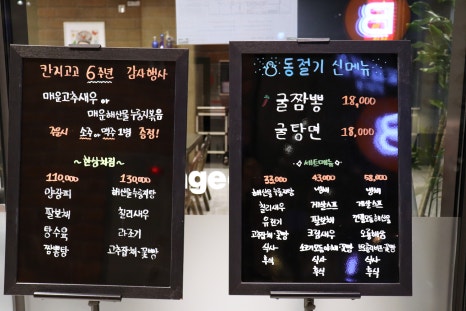 칸지고고 6주년 감사행사
매운고추새우 or
매운해산물 누룽지볶음
주문시 소주 or 맥주 1병 증정!
~ 한상차림 ~
110,000
양장피
팔보채
탕수육
짬뽕탕
130,000
해산물누룽지탕
칠리새우
깐조기
고추잡채+꽃빵
동절기 신메뉴
굴짬뽕 18,000
굴탕면 18,000
세트메뉴
33,000
해산물누룽지탕
칠리새우
유린기
고추잡채+꽃빵
식사
후식
43,000
냉채
게살스프
팔보채
크림새우
식사
후식
58,000
냉채
게살스프
오룡해삼
식사
후식